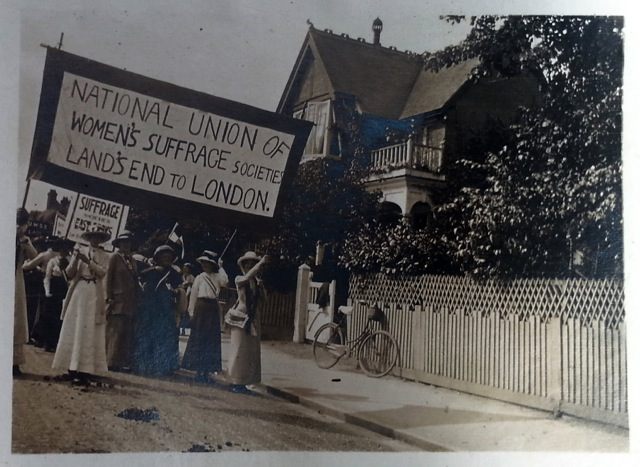 NATIONAL UNION OF
WOMEN'S SUFFRAGE SOCIETIES
LAND'S END TO LONDON.
SUFFRAGE